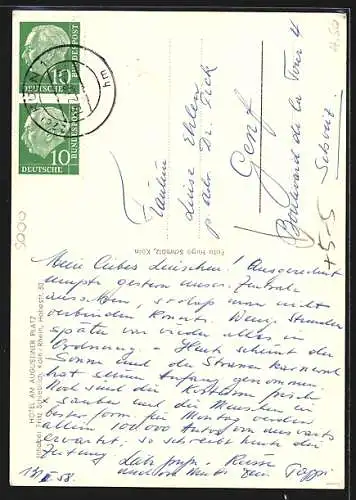 10
DEUTSCHE
BUNDESPOST
10
DEUTSCHE
BUNDESPOST
hm
Fräulein
Luise Ehlen
p. adr. Dr. Pick
Genf
Boulevard de la Tour 4
Schweiz
Foto Hugo Schmölz, Köln
HOTEL AM AUGUSTINER PLATZ
Inhaber: Fritz Schlebusch, Köln/Rhein, Hohestr. 30
Mein liebes Luischen! Ausgerechnet
musste gestern unsere Zentrale
aussetzen, sodass man nicht
verbinden konnte. Wenig Stunden
später war wieder alles in
Ordnung. – Heute scheint die
Sonne und der Strassenkarneval
hat seinen Anfang genommen.
Noch sind die Kostüme frisch
& sauber und die Menschen in
bester Form. für Montag werden
allein 100 000 Autos von auswärts
erwartet, so schreibt heute die
Zeitung.
Pappi
58.